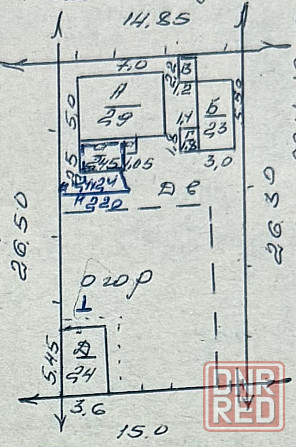 14.85
7,0
2,2
В
1,2
А
29
5,0
Б
23
5,50
1,1
Г
1,5
1,8
3,0
2,5
1,05
Дв
26.50
26.30
огор
5.45
Д
24
3.6
15.0
DNR
RED